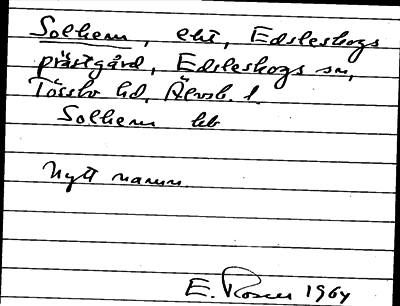 Solhem, eht, Edsleskogs
prästgård, Edsleskogs sn,
Tössbo hd, Älvsb. l.
Solhem hb
Nytt namn.
E. Rosen 1964